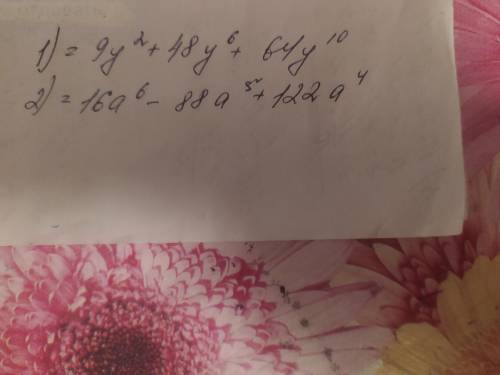 1) = 9y² + 48y⁶ + 64y¹⁰
2) = 16a⁶ - 88a⁵ + 122a⁴